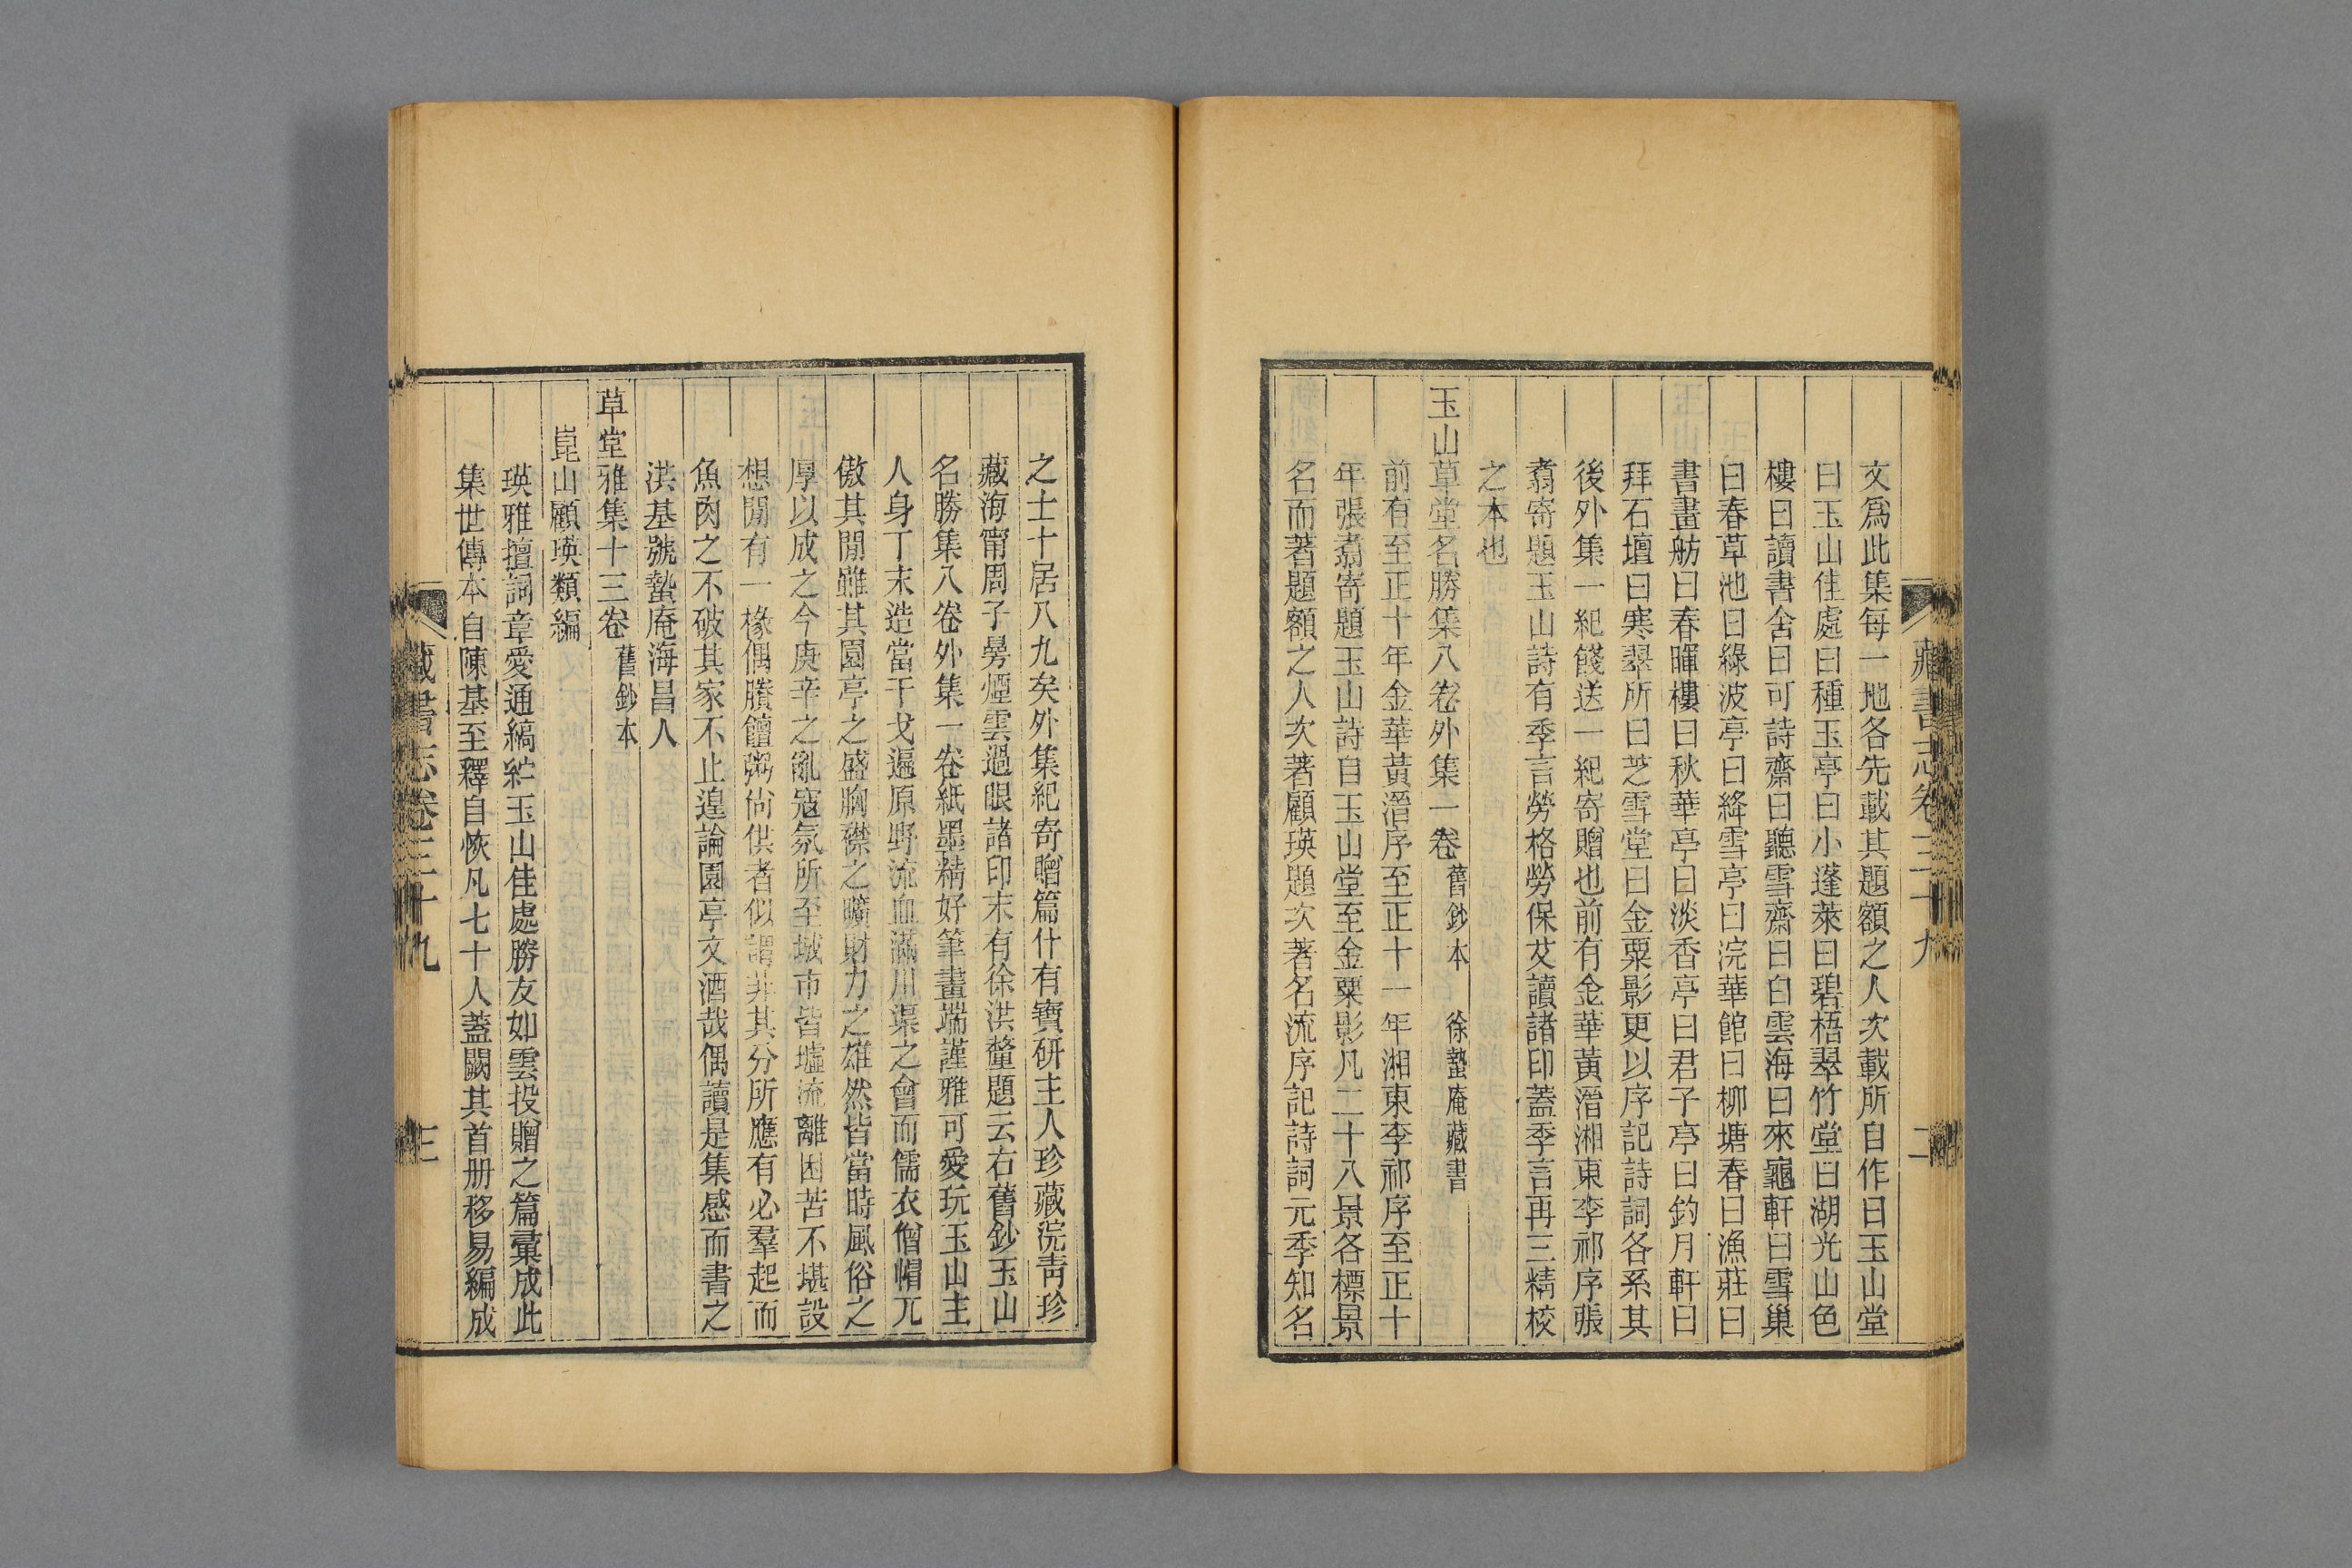 藏書志卷三十九 二
文爲此集每一地各先載其題額之人次載所自作曰玉山堂
曰玉山佳處曰種玉亭曰小蓬萊曰碧梧翠竹堂曰湖光山色
樓曰讀書舍曰可詩齋曰聽雪齋曰白雲海曰來龜軒曰雪巢
曰春草池曰綠波亭曰絳雪亭曰浣華館曰柳塘春曰漁莊曰
書畫舫曰春暉樓曰秋華亭曰淡香亭曰君子亭曰釣月軒曰
拜石壇曰寒翠所曰芝雪堂曰金粟影更以序記詩詞各系其
後外集一紀餞送一紀寄贈也前有金華黃溍湘東李祁序張
翥寄題玉山詩有季言勞格勞保艾讀諸印蓋季言再三精校
之本也
玉山草堂名勝集八卷外集一卷 舊鈔本 徐蟄庵藏書
前有至正十年金華黃溍序至正十一年湘東李祁序至正十
年張翥寄題玉山詩自玉山堂至金粟影凡二十八景各標景
名而著題額之人次著顧瑛題次著名流序記詩詞元季知名
之士十居八九矣外集紀寄贈篇什有寶研主人珍藏浣青珍
藏海甯周子昜煙雲過眼諸印末有徐洪釐題云右舊鈔玉山
名勝集八卷外集一卷紙墨精好筆畫端謹雅可愛玩玉山主
人身丁末造當干戈遍原野流血滿川渠之會而儒衣僧帽兀
傲其閒雖其園亭之盛胸襟之曠財力之雄然皆當時風俗之
厚以成之今庚辛之亂寇氛所至城市皆墟流離困苦不堪設
想閒有一椽偶賸饘粥尙供者似謂非其分所應有必羣起而
魚肉之不破其家不止遑論園亭文酒哉偶讀是集感而書之
洪基號蟄庵海昌人
草堂雅集十三卷 舊鈔本
崑山顧瑛類編
瑛雅擅詞章愛通縞紵玉山佳處勝友如雲投贈之篇彙成此
集世傳本自陳基至釋自恢凡七十人蓋闕其首册移易編成
藏書志卷三十九 三